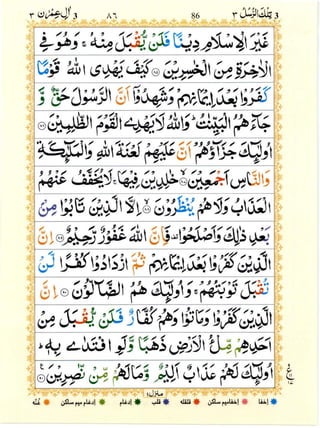 تِلْكَ الرُّسُلُ ٣ 86 ٨٦ اٰلِ عِمْرٰن ٣
غَيْرَ الْاِسْلَامِ دِيْنًا فَلَنْ يُّقْبَلَ مِنْهُ ۚ وَهُوَ فِي
الْاٰخِرَةِ مِنَ الْخٰسِرِيْنَ ﴿٨٥﴾ كَيْفَ يَهْدِي اللّٰهُ قَوْمًا
كَفَرُوْا بَعْدَ اِيْمَانِهِمْ وَشَهِدُوْٓا اَنَّ الرَّسُوْلَ حَقٌّ وَّ
جَآءَهُمُ الْبَيِّنٰتُ ؕ وَاللّٰهُ لَا يَهْدِي الْقَوْمَ الظّٰلِمِيْنَ ﴿٨٦﴾
اُولٰٓئِكَ جَزَآؤُهُمْ اَنَّ عَلَيْهِمْ لَعْنَةَ اللّٰهِ وَالْمَلٰٓئِكَةِ
وَالنَّاسِ اَجْمَعِيْنَ ﴿٨٧﴾ خٰلِدِيْنَ فِيْهَا ۚ لَا يُخَفَّفُ عَنْهُمُ
الْعَذَابُ وَلَا هُمْ يُنْظَرُوْنَ ﴿٨٨﴾ اِلَّا الَّذِيْنَ تَابُوْا مِنْۢ
بَعْدِ ذٰلِكَ وَاَصْلَحُوْا ۟ فَاِنَّ اللّٰهَ غَفُوْرٌ رَّحِيْمٌ ﴿٨٩﴾ اِنَّ
الَّذِيْنَ كَفَرُوْا بَعْدَ اِيْمَانِهِمْ ثُمَّ ازْدَادُوْا كُفْرًا لَّنْ
تُقْبَلَ تَوْبَتُهُمْ ۚ وَاُولٰٓئِكَ هُمُ الضَّآلُّوْنَ ﴿٩٠﴾ اِنَّ
الَّذِيْنَ كَفَرُوْا وَمَاتُوْا وَهُمْ كُفَّارٌ فَلَنْ يُّقْبَلَ مِنْ
اَحَدِهِمْ مِّلْءُ الْاَرْضِ ذَهَبًا وَّلَوِ افْتَدٰى بِهٖ ؕ
اُولٰٓئِكَ لَهُمْ عَذَابٌ اَلِيْمٌ وَّمَا لَهُمْ مِّنْ نّٰصِرِيْنَ ﴿٩١﴾
منزل ١
اخفا اخفا میم ساکن قلقله قلب ادغام ادغام میم ساکن غنّه